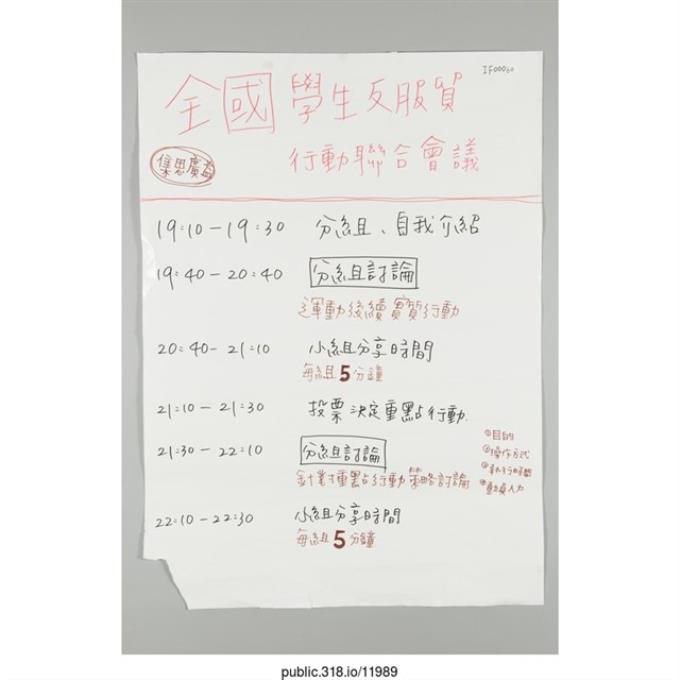 IF00060
全國學生反服貿
行動聯合會議
集思廣益
19:10-19:30 分組、自我介紹
19:40-20:40 分組討論
運動後續實質行動
20:40-21:10 小組分享時間
每組5分鐘
21:10-21:30 投票決定重點行動
21:30-22:10 分組討論
針對重點行動策略討論
①目的
②操作方式
③執行時間
④動員人力
22:10-22:30 小組分享時間
每組5分鐘
public.318.io/11989